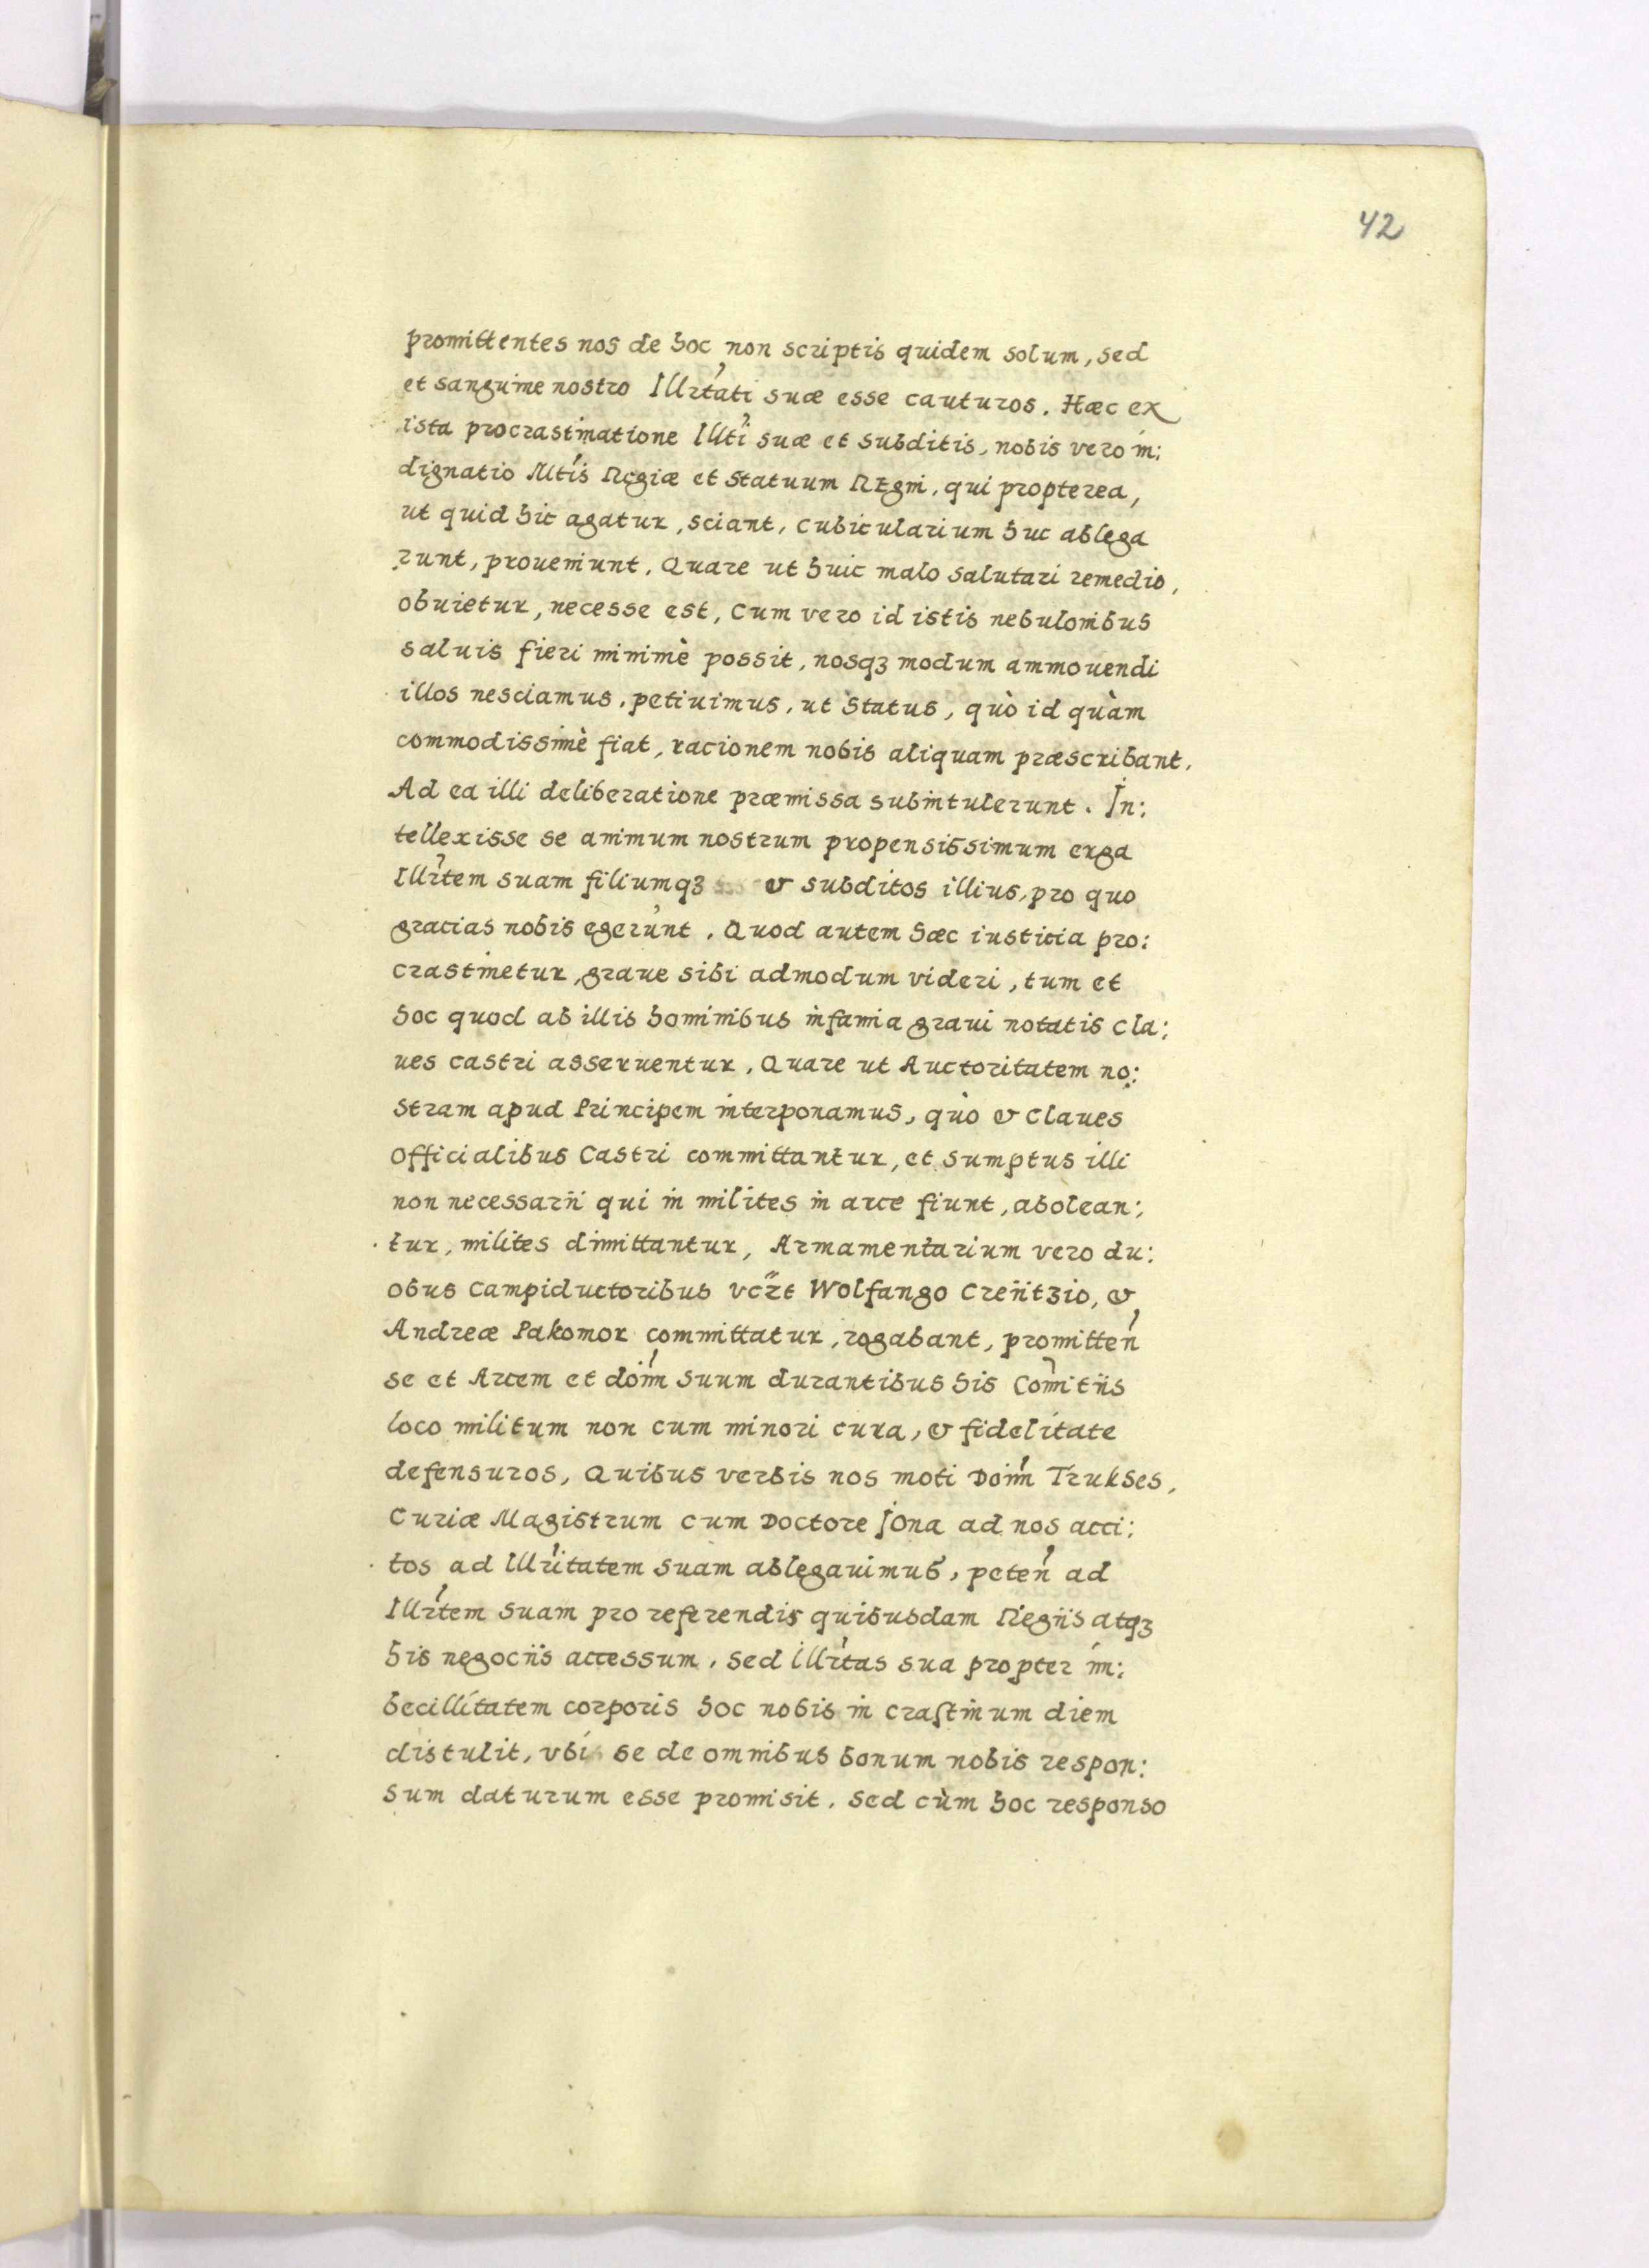 42
promittentes nos de hoc non scriptis quidem solum, sed
et sanguine nostro Illrtati suæ esse cauturos. Hæc ex
ista procrastinatione Illti suæ et subditis, nobis vero in:
dignatio Mtis Regiæ et Statuum REgni, qui propterea,
ut quid hic agatur, sciant, cubicularium huc ablega
runt, proueniunt. Quare ut huic malo salutari remedio,
obuietur, necesse est, Cum vero id istis nebulonibus
saluis fieri minimè possit, nosqȝ modum ammouendi
illos nesciamus, petiuimus, ut Status, quò id quàm
commodissimè fiat, racionem nobis aliquam præscribant.
Ad ea illi deliberatione præmissa subintulerunt. In:
tellexisse se animum nostrum propensissimum erga
Illrtem suam filiumqȝ & subditos illius, pro quo
gracias nobis egerunt. Quod autem hæc iusticia pro:
crastinetur, graue sibi admodum videri, tum et
hoc quod ab illis hominibus infamia graui notatis cla:
ues castri asseruentur. Quare ut Auctoritatem no:
stram apud Principem interponamus, quò & Claues
Officialibus Castri committantur, et sumptus illi
non necessarii qui in milites in arce fiunt, abolean:
tur, milites dimittantur, Armamentarium vero du:
obus Campiductoribus vcrt Wolfango Crentzio, &
Andreæ Pakomor committatur, rogabant, promitten
se et Arcem et doim suum durantibus his Comitiis
loco militum non cum minori cura, & fidelitate
defensuros, Quibus verbis nos moti Doim Trukses,
Curiæ Magistrum cum Doctore Jona ad nos acci:
tos ad Illritatem suam ablegauimus, peten ad
Illrtem suam pro referendis quibusdam Regiis atqȝ
his negociis accessum. Sed Illrtas sua propter im:
becillitatem corporis hoc nobis in crastinum diem
distulit, vbi se de omnibus bonum nobis respon:
sum daturum esse promisit. Sed cùm hoc responso